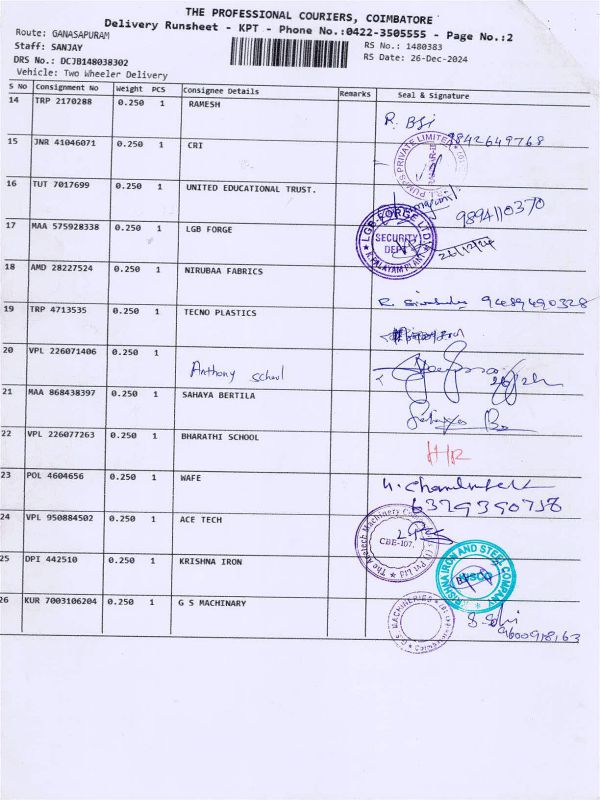 THE PROFESSIONAL COURIERS, COIMBATORE
Delivery Runsheet - KPT - Phone No.:0422-3505555 - Page No.:2
Route: GANASAPURAM
RS No.: 1480383
Staff: SANJAY
RS Date: 26-Dec-2024
DRS No.: DCJB148038302
Vehicle: Two Wheeler Delivery
S No Consignment No Weight PCS Consignee Details Remarks Seal & Signature
14 TRP 2170288 0.250 1 RAMESH
9842649768
15 JNR 41046071 0.250 1 CRI
PUMPS PRIVATE LIMITED
16 TUT 7017699 0.250 1 UNITED EDUCATIONAL TRUST.
9894110370
17 MAA 575928338 0.250 1 LGB FORGE
LGB FORGE LTD
SECURITY
DEPT
26/12/24
18 AMD 28227524 0.250 1 NIRUBAA FABRICS
9489490328
19 TRP 4713535 0.250 1 TECNO PLASTICS
20 VPL 226071406 0.250 1
Anthony school
21 MAA 868438397 0.250 1 SAHAYA BERTILA
22 VPL 226077263 0.250 1 BHARATHI SCHOOL
23 POL 4604656 0.250 1 WAFE
24 VPL 950884502 0.250 1 ACE TECH
CBE-107.
25 DPI 442510 0.250 1 KRISHNA IRON
KRISHNA IRON AND STEEL COMPANY
26 KUR 7003106204 0.250 1 G S MACHINARY
G.S MACHINERIES
9600918163